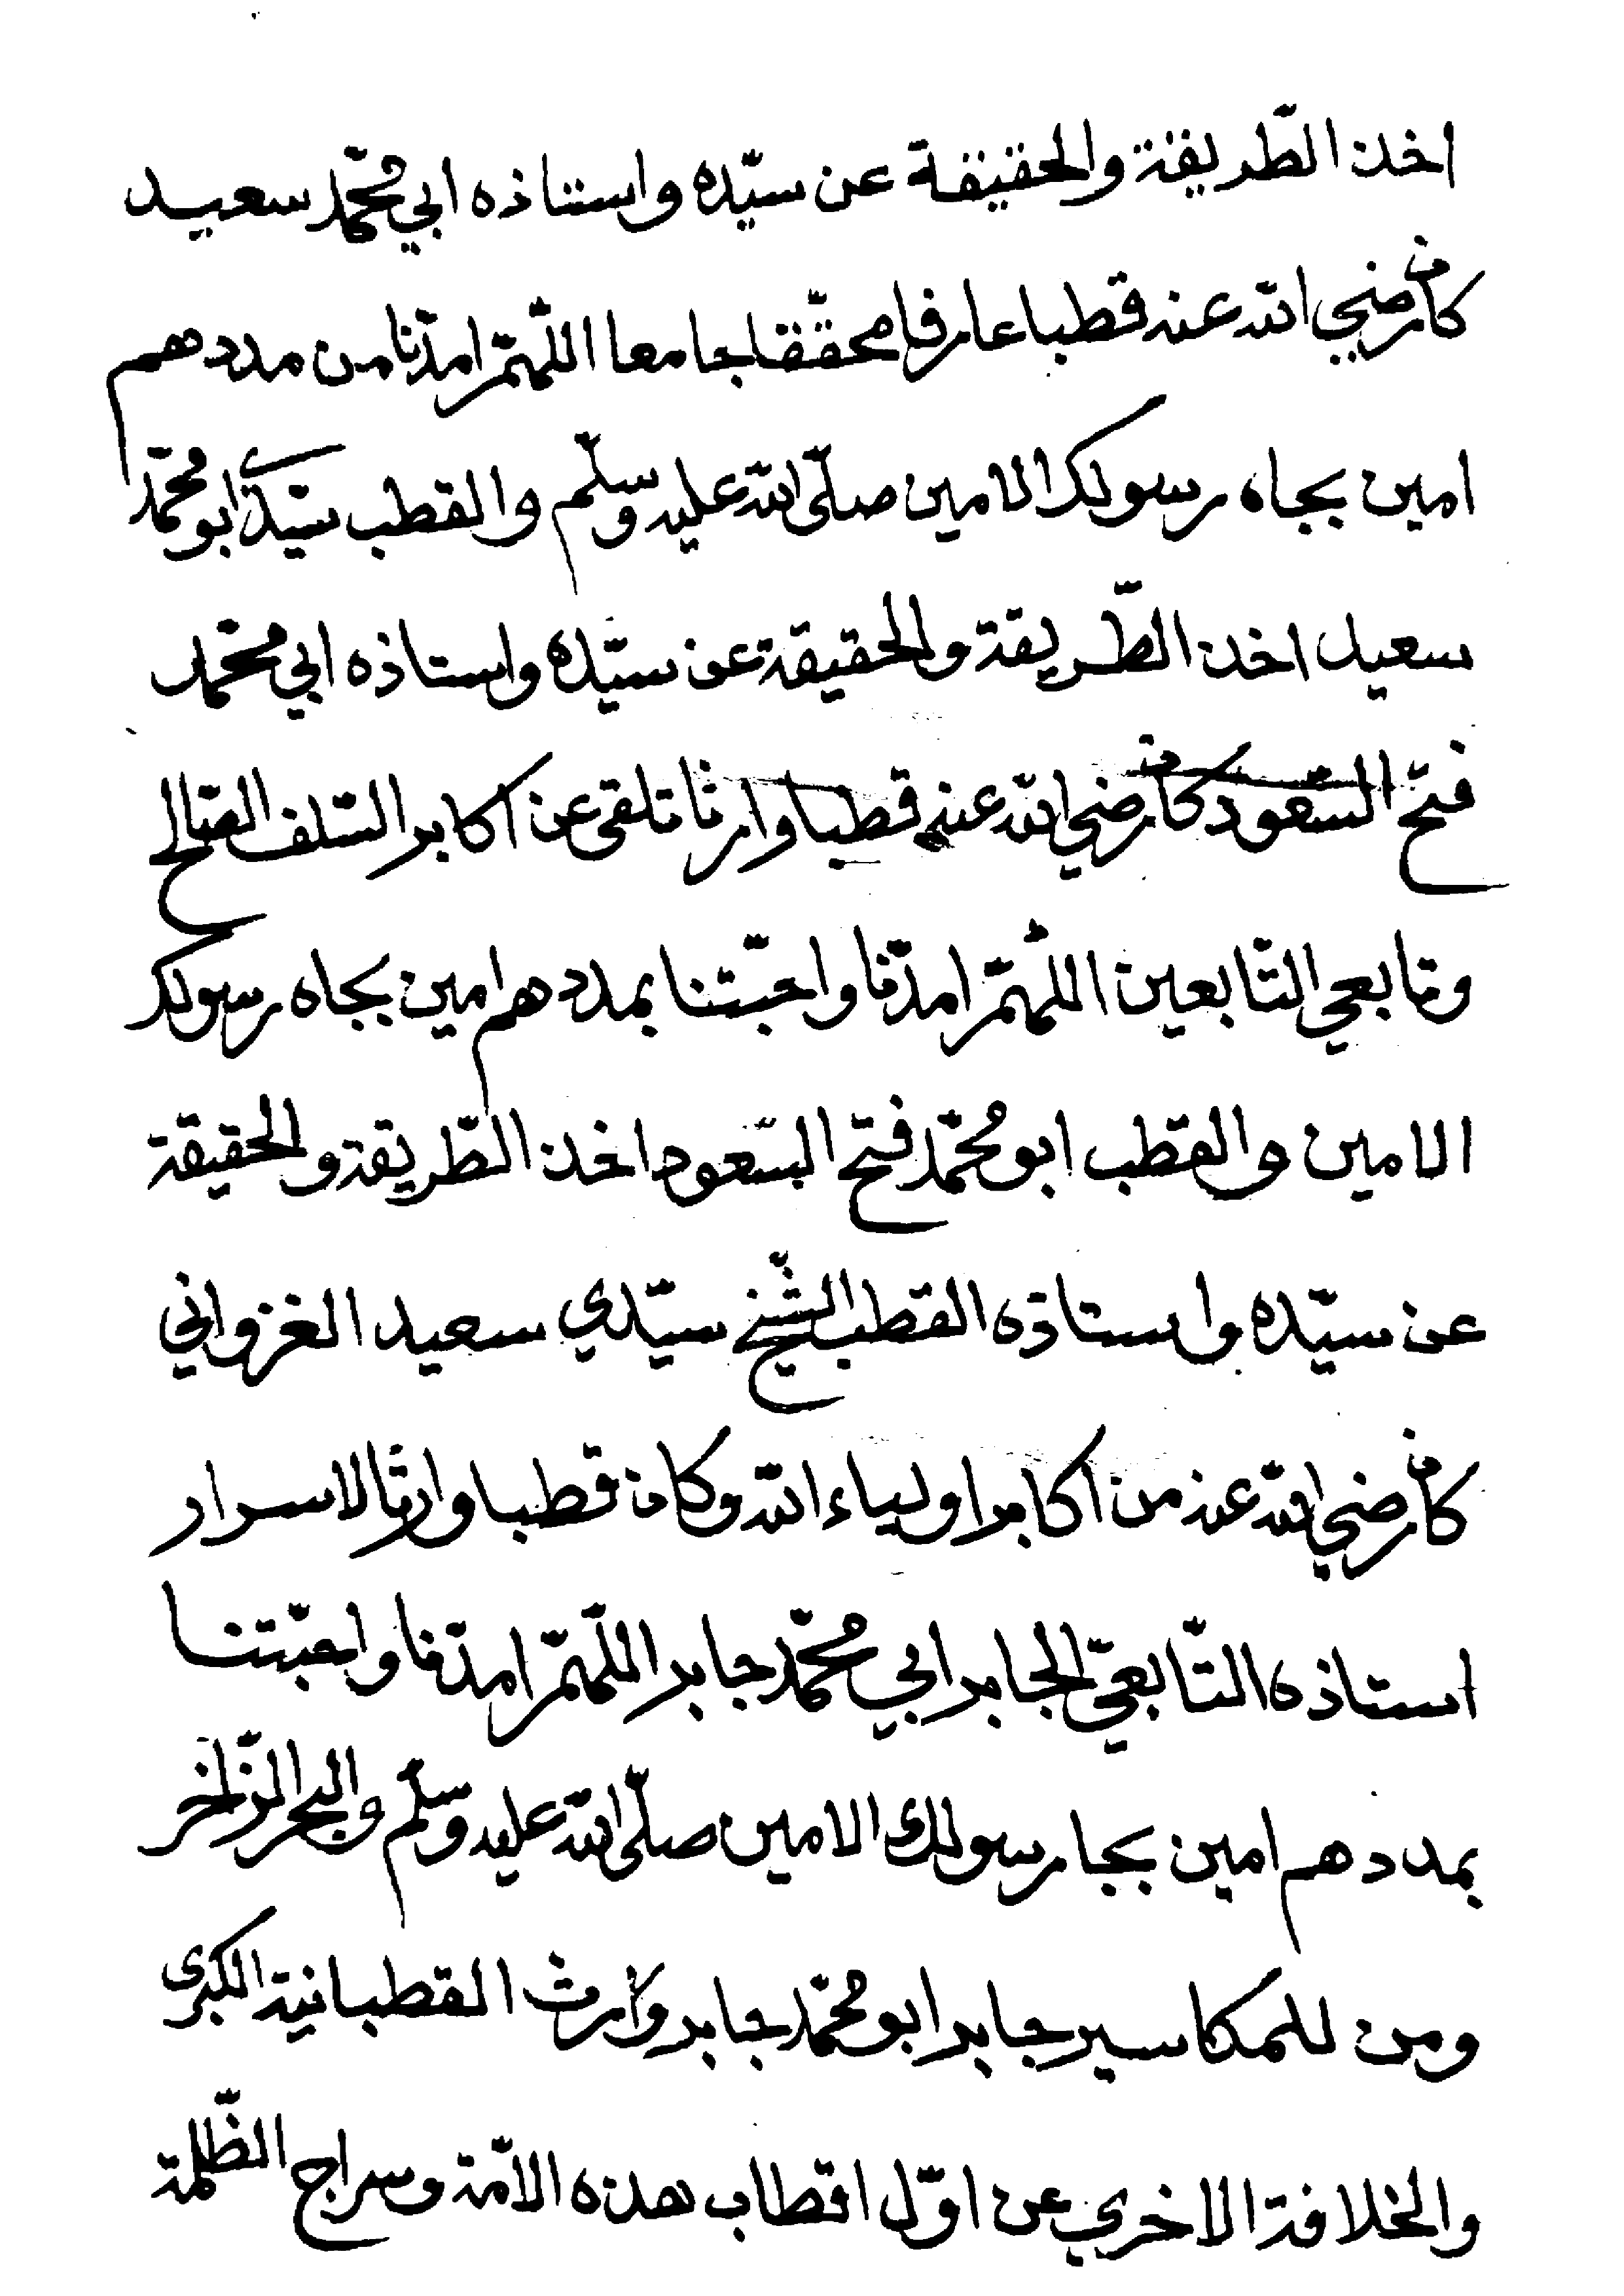 اخذ الطّريقة والحقيقة عن سيّده واستاذه ابي محّمد سعيد
كان رضي الله عنه قطبا عارفا محقّقا جامعا اللّهمّ امدّنا من مددهم
امين بجاه رسولك الامين صلّى الله عليه وسلّم والقطب سيّدي ابو محمّد
سعيد اخذ الطّريقة والحقيقة عن سيّده واستاذه ابي محمّد
فتح السّعود كان رضي الله عنه قطبا وارثا تلقى عن اكابر السّلف الصّالح
وتابعي التّابعين اللّهمّ امدّنا واحبّتنا بمددهم امين بجاه رسولك
الامين والقطب ابو محمّد فتح السّعود اخذ الطّريقة والحقيقة
عن سيّده واستاذه القطب الشّيخ سيّدي سعيد الغزواني
كان رضي الله عنه من اكابر اولياء الله وكان قطبا وارثا لاسرار
استاذه التّابعيّ الجابر ابي محمّد جابر اللّهمّ امدّنا واحبّتنا
بمددهم امين بجا رسولك الامين صلّى الله عليه وسلّم والبحر الزّاخر
ومن للمكاسير جابر ابو محمّد جابر وارث القطبانية الكبرى
والخلافة الاخري عن اوّل اقطاب هذه الامّة وسراج الظّلمة